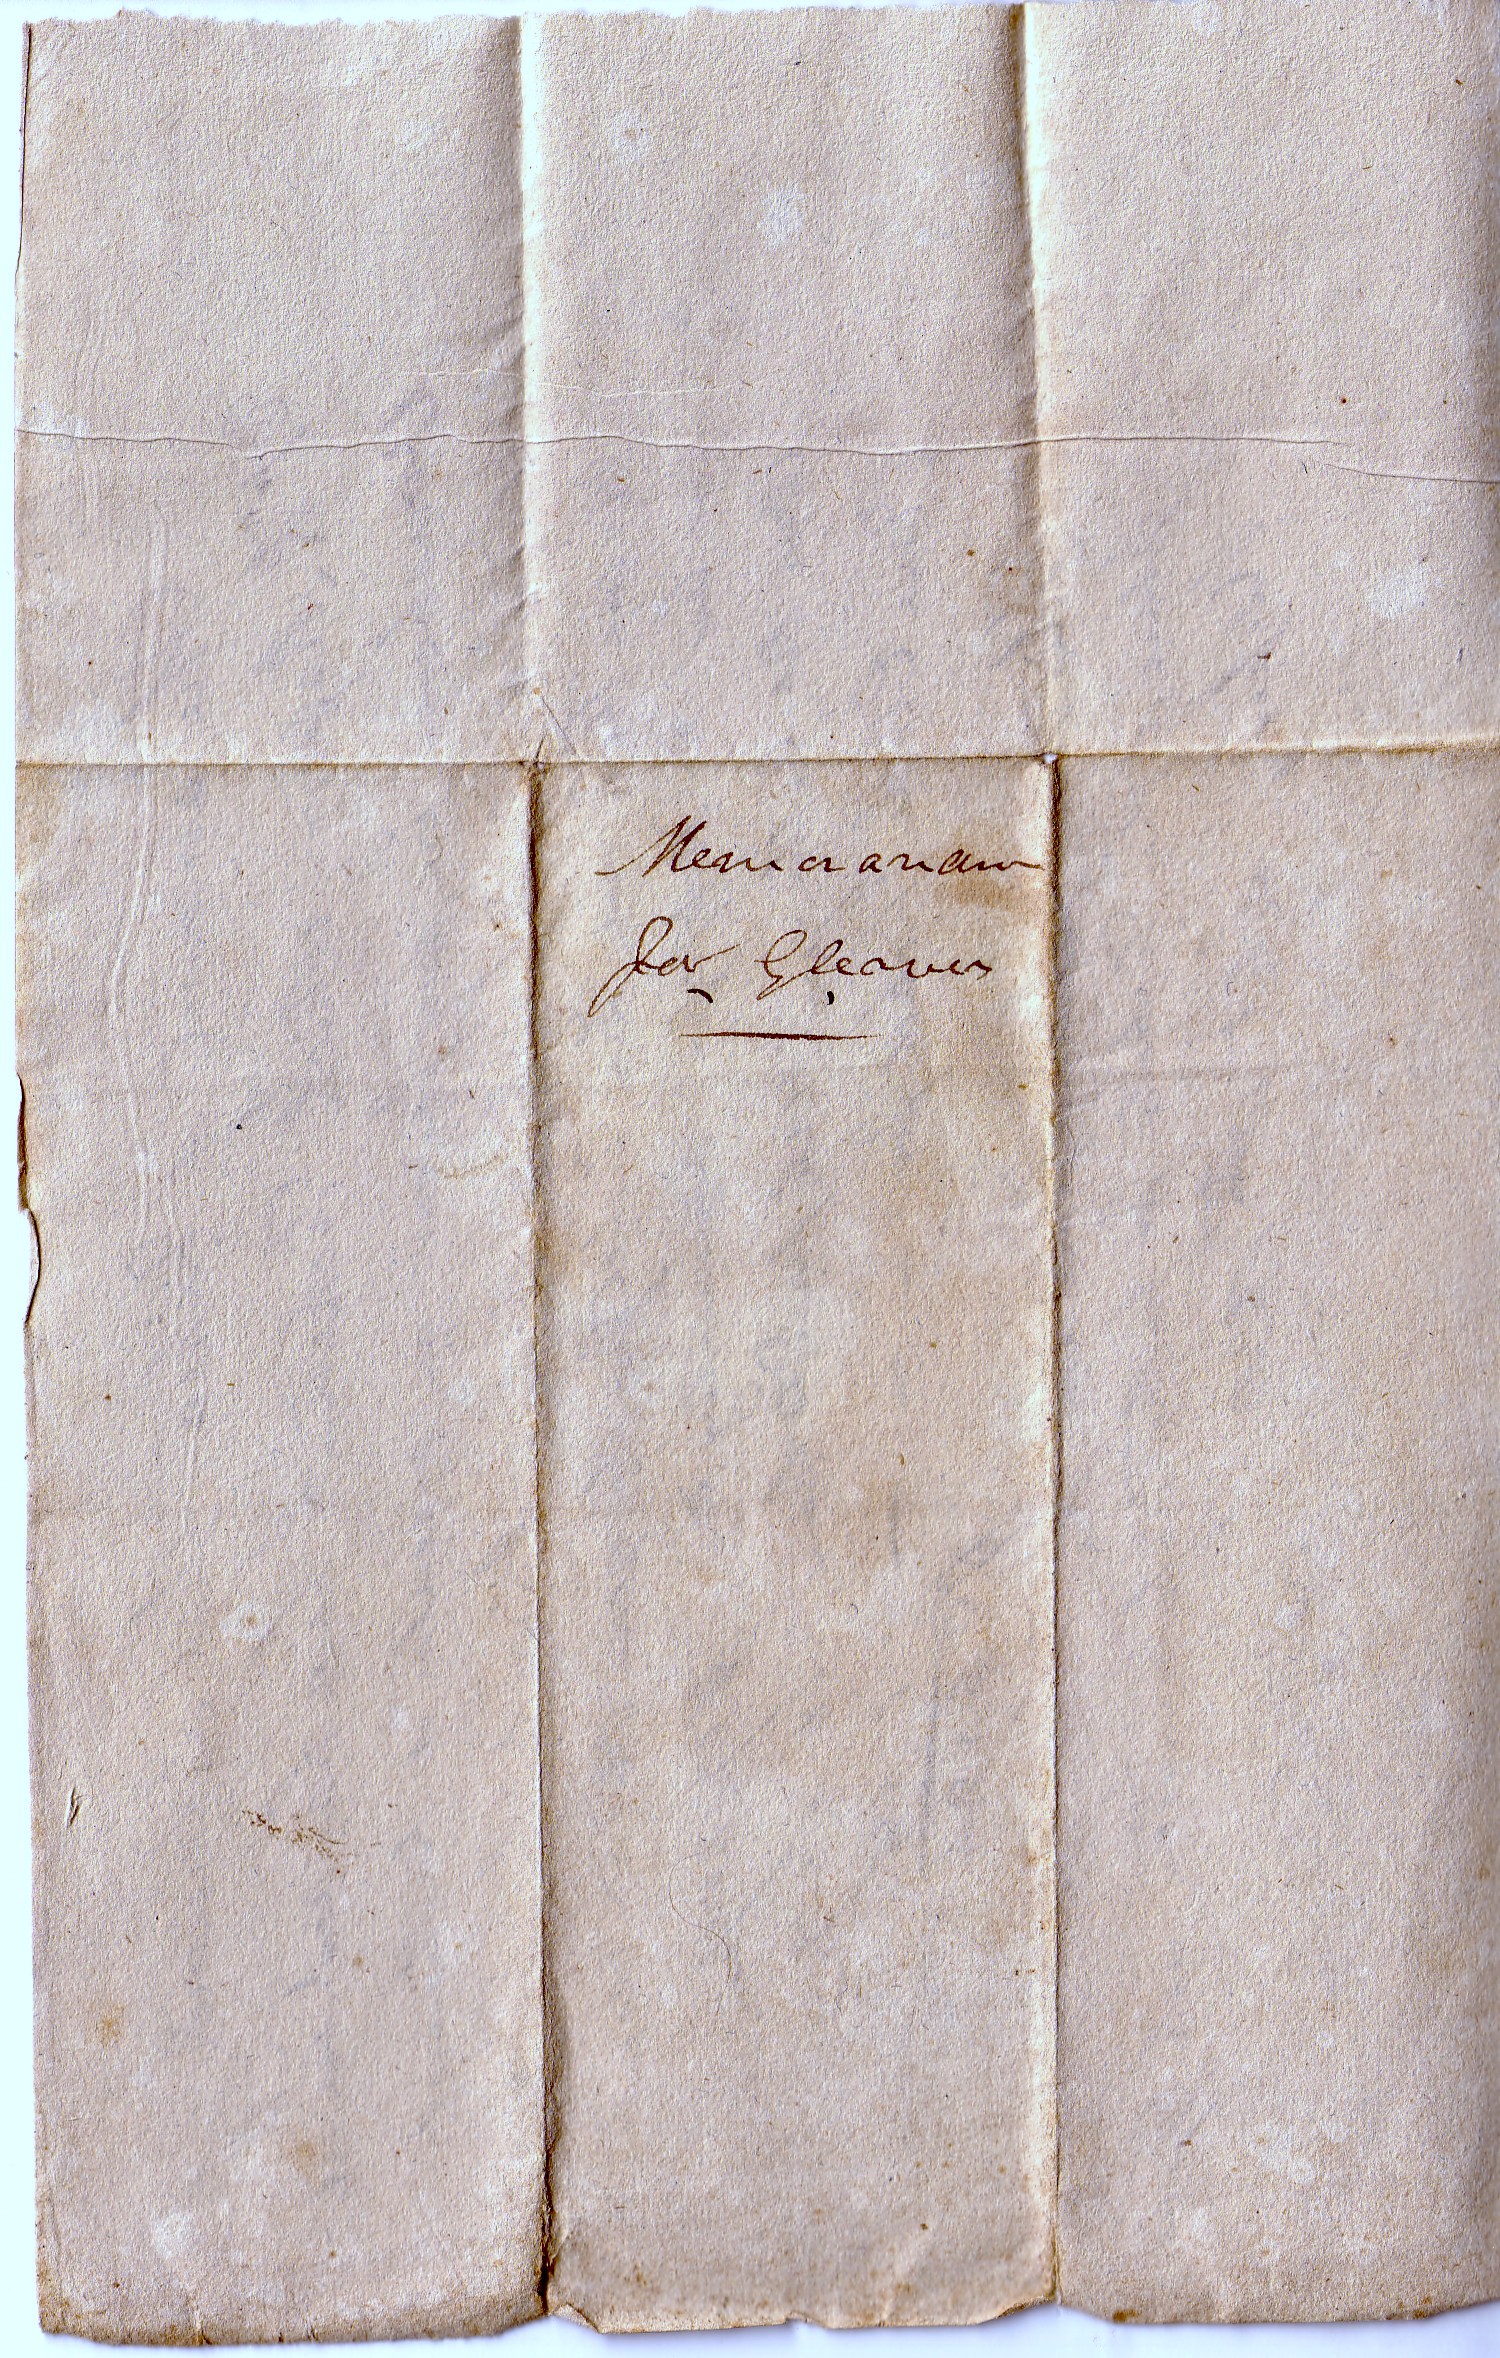 Memorandum
for Gleaves